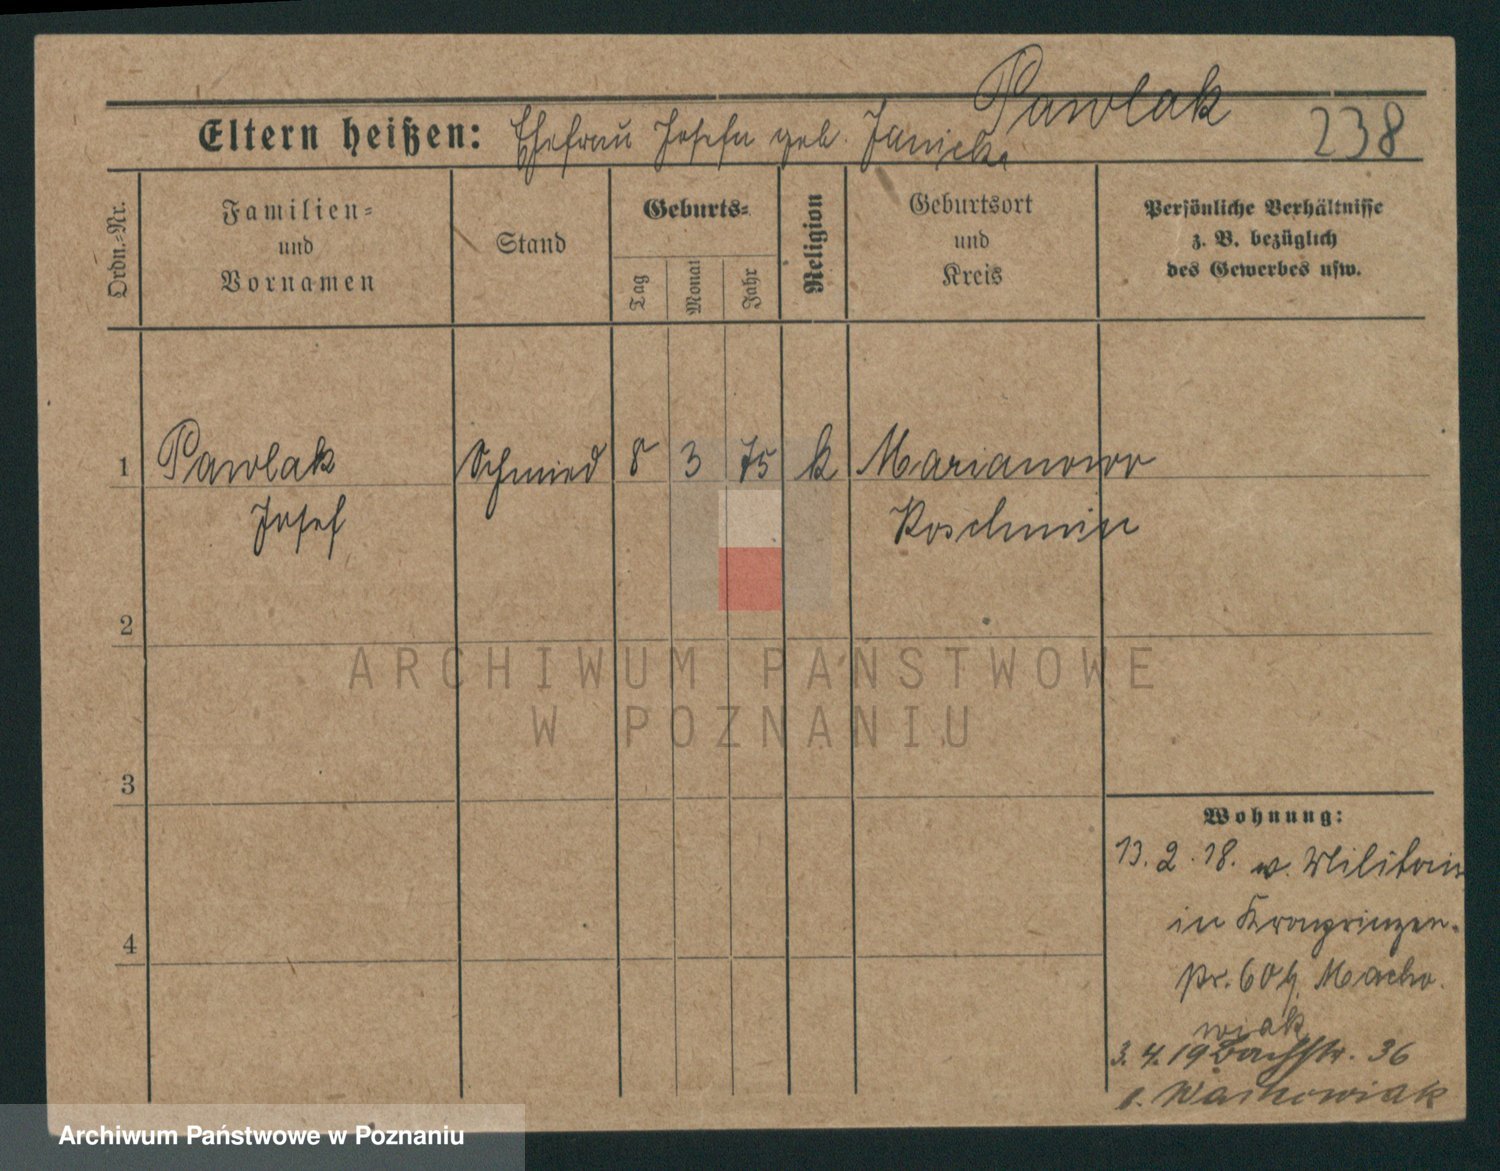 Pawlak
Eltern heißen: Ehefrau Josefa geb. Janicka
238
Ordn.-Nr.
Familien-
und
Vornamen
Stand
Geburts-
Tag
Monat
Jahr
Religion
Geburtsort
und
Kreis
Persönliche Verhältnisse
z. B. bezüglich
des Gewerbes usw.
1 Pawlak Schmied 8 3 75 k Marianowo
Josef Koschmin
2
3
4
Wohnung:
13.2.18. v. Militair
in Kronprinzen-
Macho
wiak
3.4.19 Bachstr. 36
ARCHIWUM PAŃSTWOWE
W POZNANIU
Archiwum Państwowe w Poznaniu